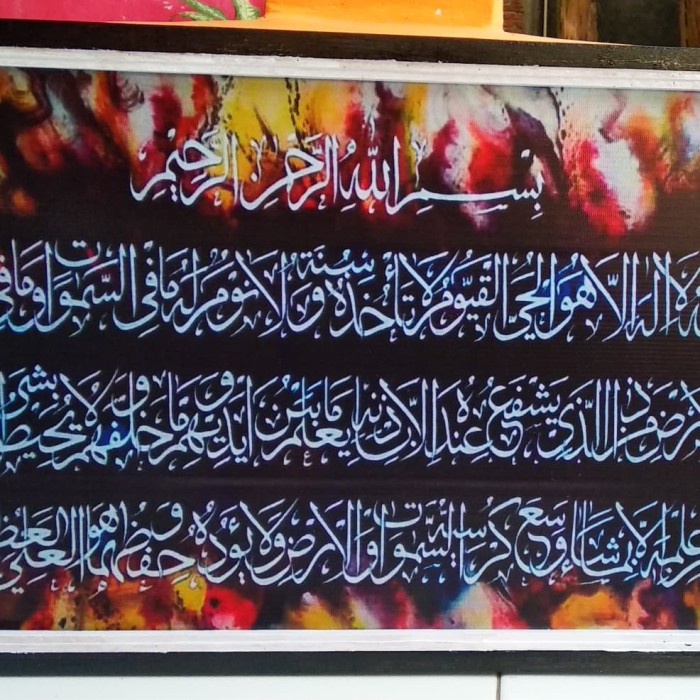 بِسْمِ اللهِ الرَّحْمٰنِ الرَّحِيْمِ
لَا اِلٰهَ اِلَّا هُوَ الْحَيُّ الْقَيُّوْمُ لَا تَأْخُذُهُ سِنَةٌ وَّلَا نَوْمٌ لَهُ مَا فِى السَّمٰوٰتِ وَمَا فِى
ذَا الَّذِيْ يَشْفَعُ عِنْدَهُ اِلَّا بِاِذْنِهِ يَعْلَمُ مَا بَيْنَ اَيْدِيْهِمْ وَمَا خَلْفَهُمْ وَلَا يُحِيْطُوْنَ بِشَيْءٍ
عِلْمِهِ اِلَّا بِمَا شَاءَ وَسِعَ كُرْسِيُّهُ السَّمٰوٰتِ وَالْاَرْضَ وَلَا يَئُوْدُهُ حِفْظُهُمَا وَهُوَ الْعَلِيُّ